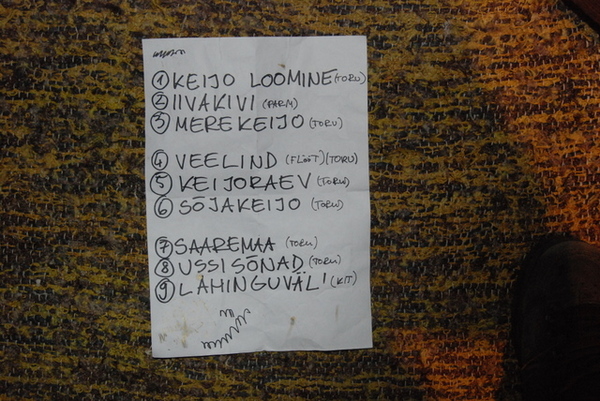 ① KEIJO LOOMINE (TORU)
② IIVAKIVI (PARM)
③ MEREKEIJO (TORU)
④ VEELIND (FLÖÖT) (TORU)
⑤ KEIJORAEV (TORU)
⑥ SÕJAKEIJO (TORU)
⑦ SAAREMAA (TORU)
⑧ USSISÕNAD (TORU)
⑨ LAHINGUVÄLI (KIT)